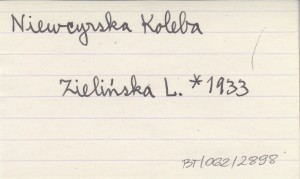 Niewcyrska Koleba
Zielińska L. *1933
BT/062/2898